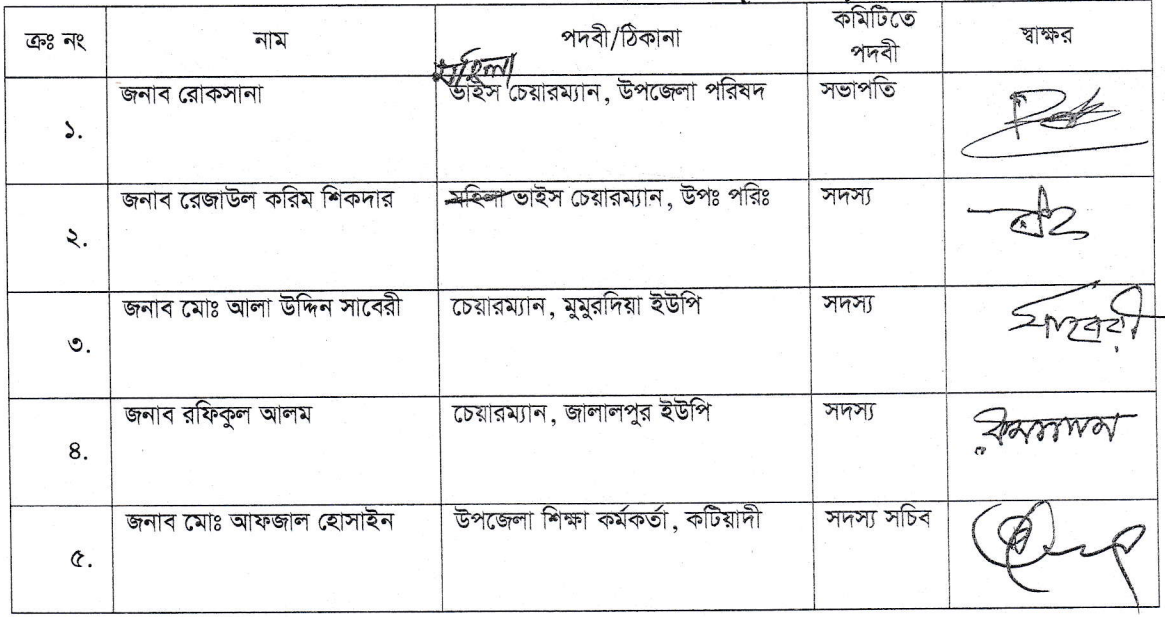 ক্রঃ নং নাম পদবী/ঠিকানা কমিটিতে পদবী স্বাক্ষর
মহিলা
১. জনাব রোকসানা ভাইস চেয়ারম্যান, উপজেলা পরিষদ সভাপতি
২. জনাব রেজাউল করিম শিকদার মহিলা ভাইস চেয়ারম্যান, উপঃ পরিঃ সদস্য
৩. জনাব মোঃ আলা উদ্দিন সাবেরী চেয়ারম্যান, মুমুরদিয়া ইউপি সদস্য সাবেরী
৪. জনাব রফিকুল আলম চেয়ারম্যান, জালালপুর ইউপি সদস্য
৫. জনাব মোঃ আফজাল হোসাইন উপজেলা শিক্ষা কর্মকর্তা, কটিয়াদী সদস্য সচিব